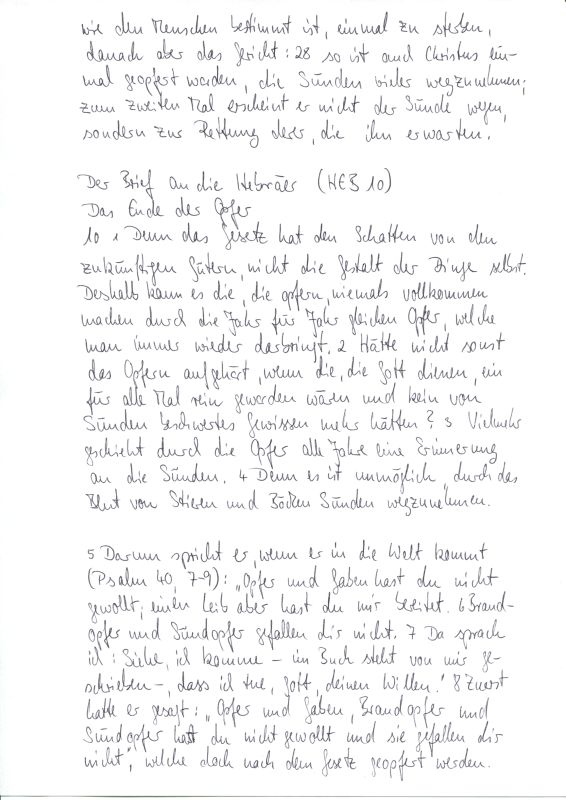 wie den Menschen bestimmt ist, einmal zu sterben,
danach aber das Gericht: 28 so ist auch Christus ein-
mal geopfert worden, die Sünden vieler wegzunehmen;
zum zweiten Mal erscheint er nicht der Sünde wegen,
sondern zur Rettung derer, die ihn erwarten.
Der Brief an die Hebräer (HEB 10)
Das Ende der Opfer
10 1 Denn das Gesetz hat den Schatten von den
zukünftigen Gütern, nicht die Gestalt der Dinge selbst.
Deshalb kann es die, die opfern, niemals vollkommen
machen durch die Jahr für Jahr gleichen Opfer, welche
man immer wieder darbringt. 2 Hätte nicht sonst
das Opfern aufgehört, wenn die, die Gott dienen, ein
für alle Mal rein geworden wären und kein von
Sünden beschwertes Gewissen mehr hätten? 3 Vielmehr
geschieht durch die Opfer alle Jahre eine Erinnerung
an die Sünden. 4 Denn es ist unmöglich, durch das
Blut von Stieren und Böcken Sünden wegzunehmen.
5 Darum spricht er, wenn er in die Welt kommt
(Psalm 40, 7-9): „Opfer und Gaben hast du nicht
gewollt; einen Leib aber hast du mir bereitet. 6 Brand-
opfer und Sündopfer gefallen dir nicht. 7 Da sprach
ich: Siehe, ich komme – im Buch steht von mir ge-
schrieben –, dass ich tue, Gott, deinen Willen." 8 Zuerst
hatte er gesagt: „Opfer und Gaben, Brandopfer und
Sündopfer hast du nicht gewollt und sie gefallen dir
nicht", welche doch nach dem Gesetz geopfert werden.